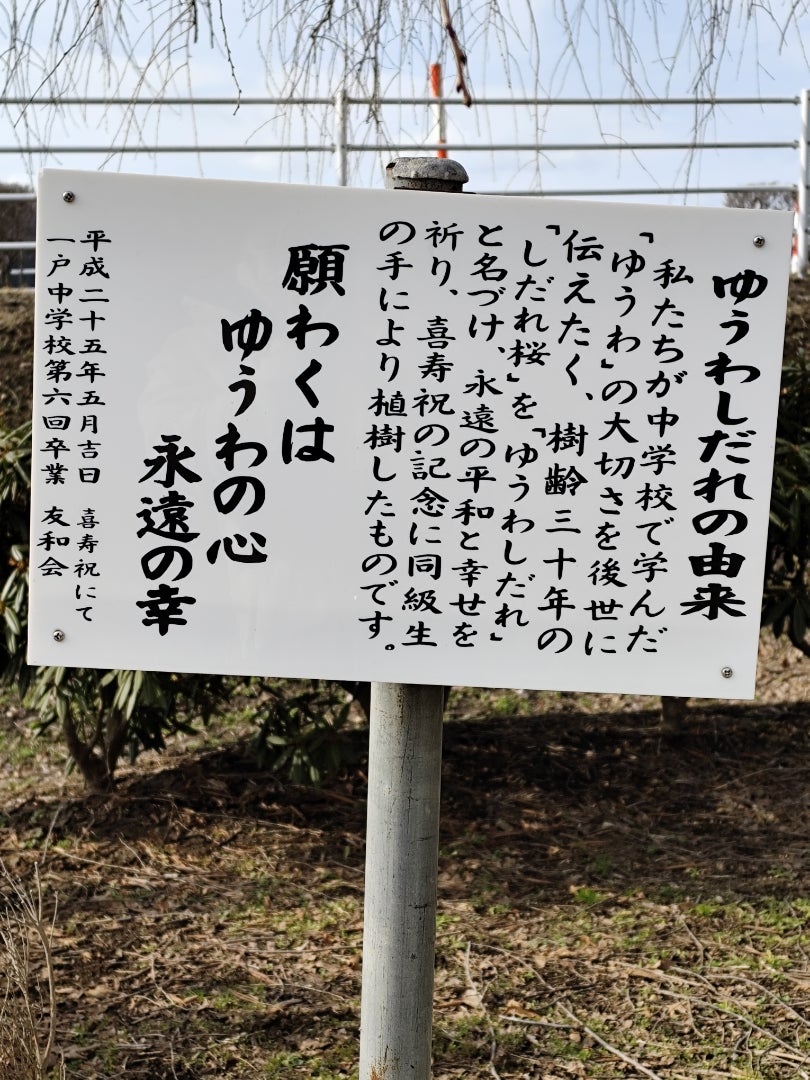 ゆうわしだれの由来
私たちが中学校で学んだ
「ゆうわ」の大切さを後世に
伝えたく、樹齢三十年の
「しだれ桜」を「ゆうわしだれ」
と名づけ、永遠の平和と幸せを
祈り、喜寿祝の記念に同級生
の手により植樹したものです。
願わくは
ゆうわの心
永遠の幸
平成二十五年五月吉日 喜寿祝にて
一戸中学校第六回卒業 友和会